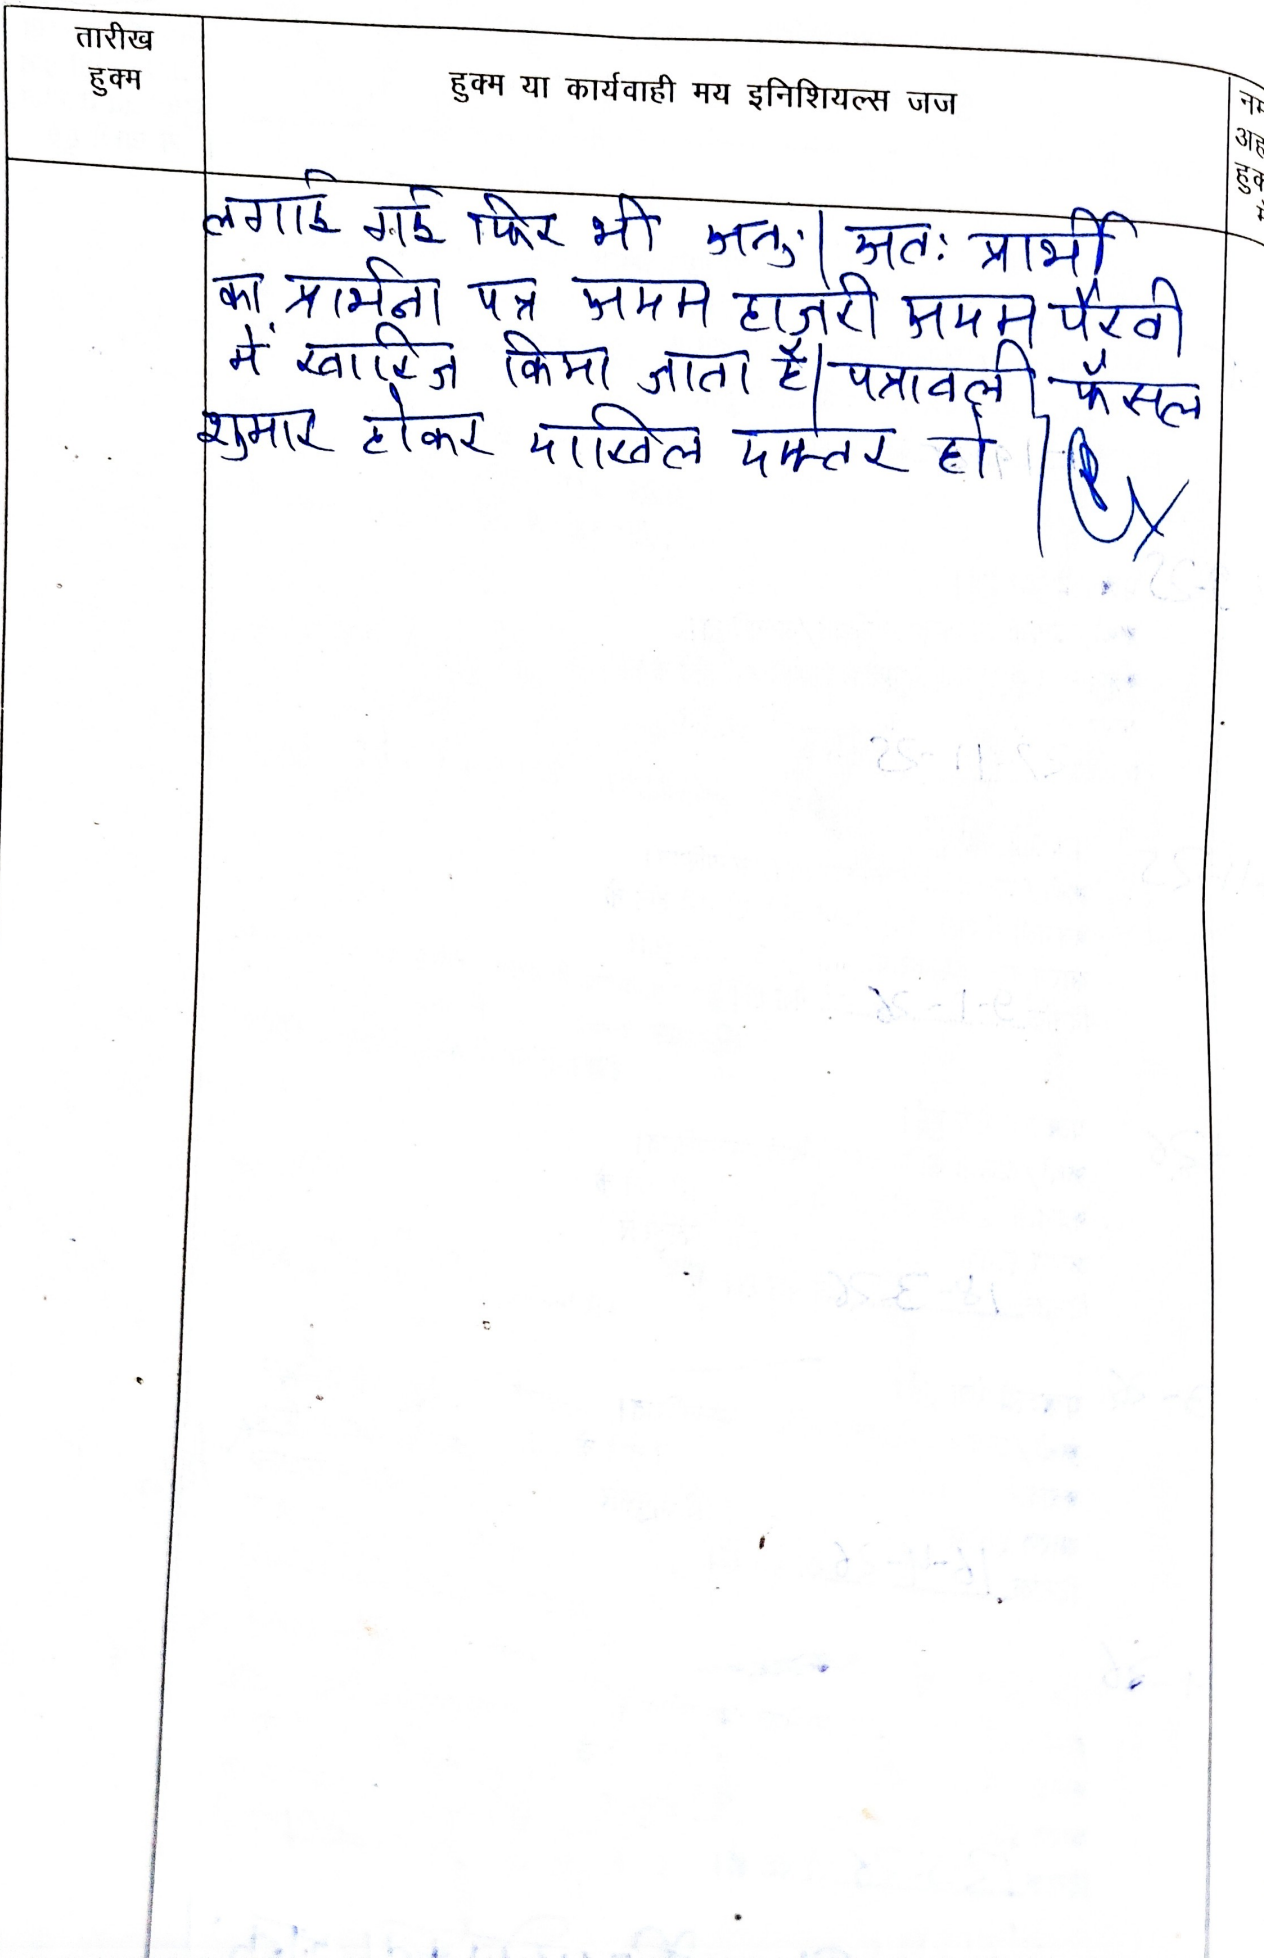 तारीख
हुक्म
हुक्म या कार्यवाही मय इनिशियल्स जज
लगाई गई फिर भी अनु:। अत: प्रार्थी
का प्रार्थना पत्र अदम हाजरी अदम पैरवी
में खारिज किया जाता है। पत्रावली फैसल
शुमार होकर दाखिल दफ्तर हो।